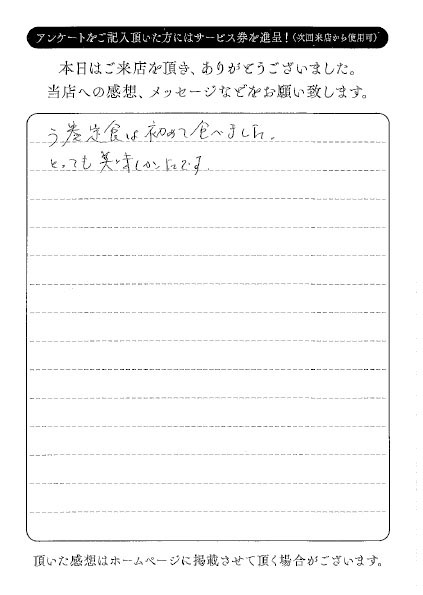 アンケートをご記入頂いた方にはサービス券を進呈！（次回来店から使用可）
本日はご来店を頂き、ありがとうございました。
当店への感想、メッセージなどをお願い致します。
う巻定食は初めて食べました。
とっても美味しかったです。
頂いた感想はホームページに掲載させて頂く場合がございます。